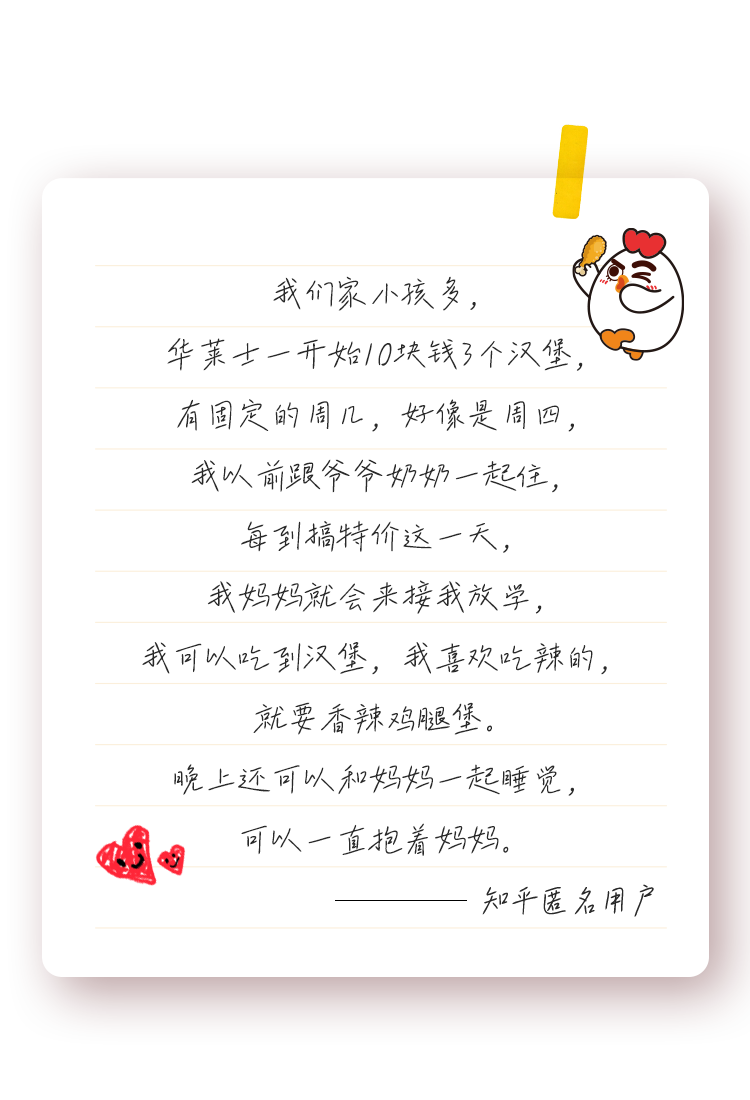 我们家小孩多，
华莱士一开始10块钱3个汉堡，
有固定的周几，好像是周四，
我以前跟爷爷奶奶一起住，
每到搞特价这一天，
我妈妈就会来接我放学，
我可以吃到汉堡，我喜欢吃辣的，
就要香辣鸡腿堡。
晚上还可以和妈妈一起睡觉，
可以一直抱着妈妈。
——知乎匿名用户